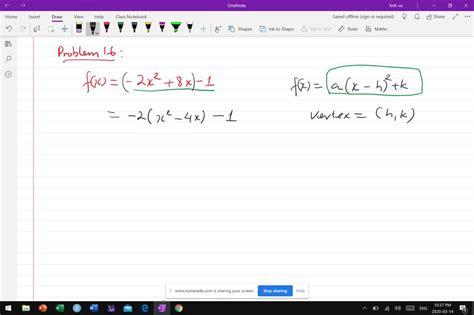 OneNote
linh vu
File Home Insert Draw View Help Class Notebook
Saved offline (sign in required)
Share
Shapes Ink to Shape Ink to Text Math
Problem 1.6:
f(x) = (-2x² + 8x) - 1
f(x) = a(x - h)² + k
= -2(x² - 4x) - 1
vertex = (h, k)
www.numerade.com is sharing your screen. Stop sharing Hide
10:57 PM
2020-03-14